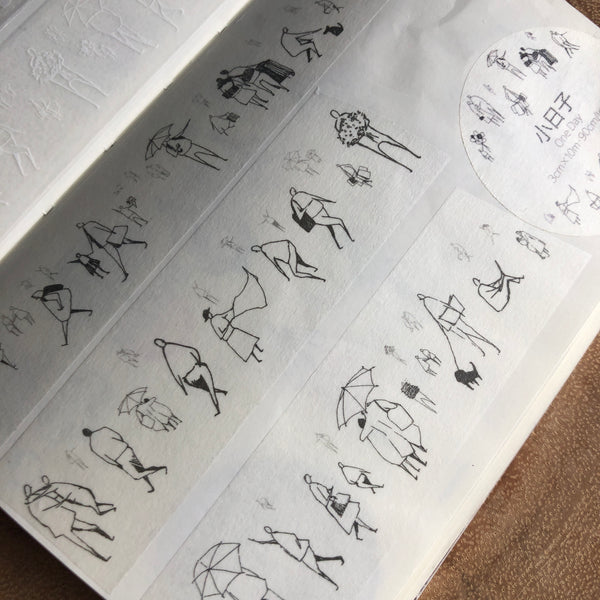 小日子
One Day
3cm×10m 90cm